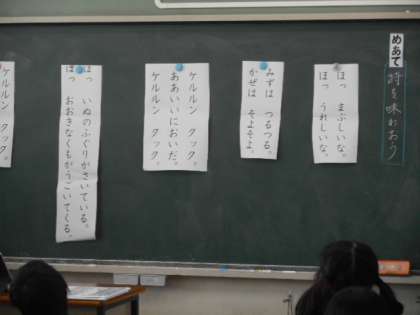 めあて
詩を味わおう
ほっ　まぶしいな。
ほっ　うれしいな。
みずは　つるつる。
かぜは　そよそよ。
ケルルン　クック。
ああいいにおいだ。
ケルルン　クック。
ほっ　いぬのふぐりがさいている。
ほっ　おおきなくもがうごいてくる。
ケルルン　クック。